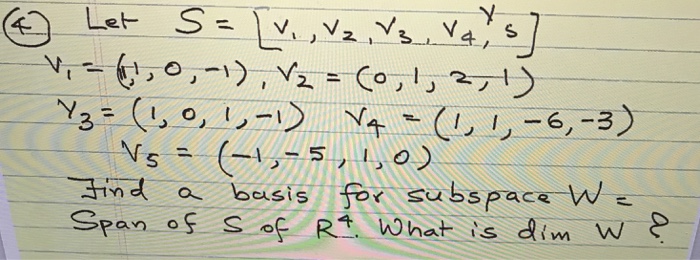 ④ Let S = [V₁, V₂, V₃, V₄, V₅]
V₁ = (1,1,0,-1), V₂ = (0,1,2,1)
V₃ = (1,0,1,-1) V₄ = (1,1,-6,-3)
V₅ = (-1,-5,1,0)
Find a basis for subspace W =
Span of S of R⁴. What is dim W ?